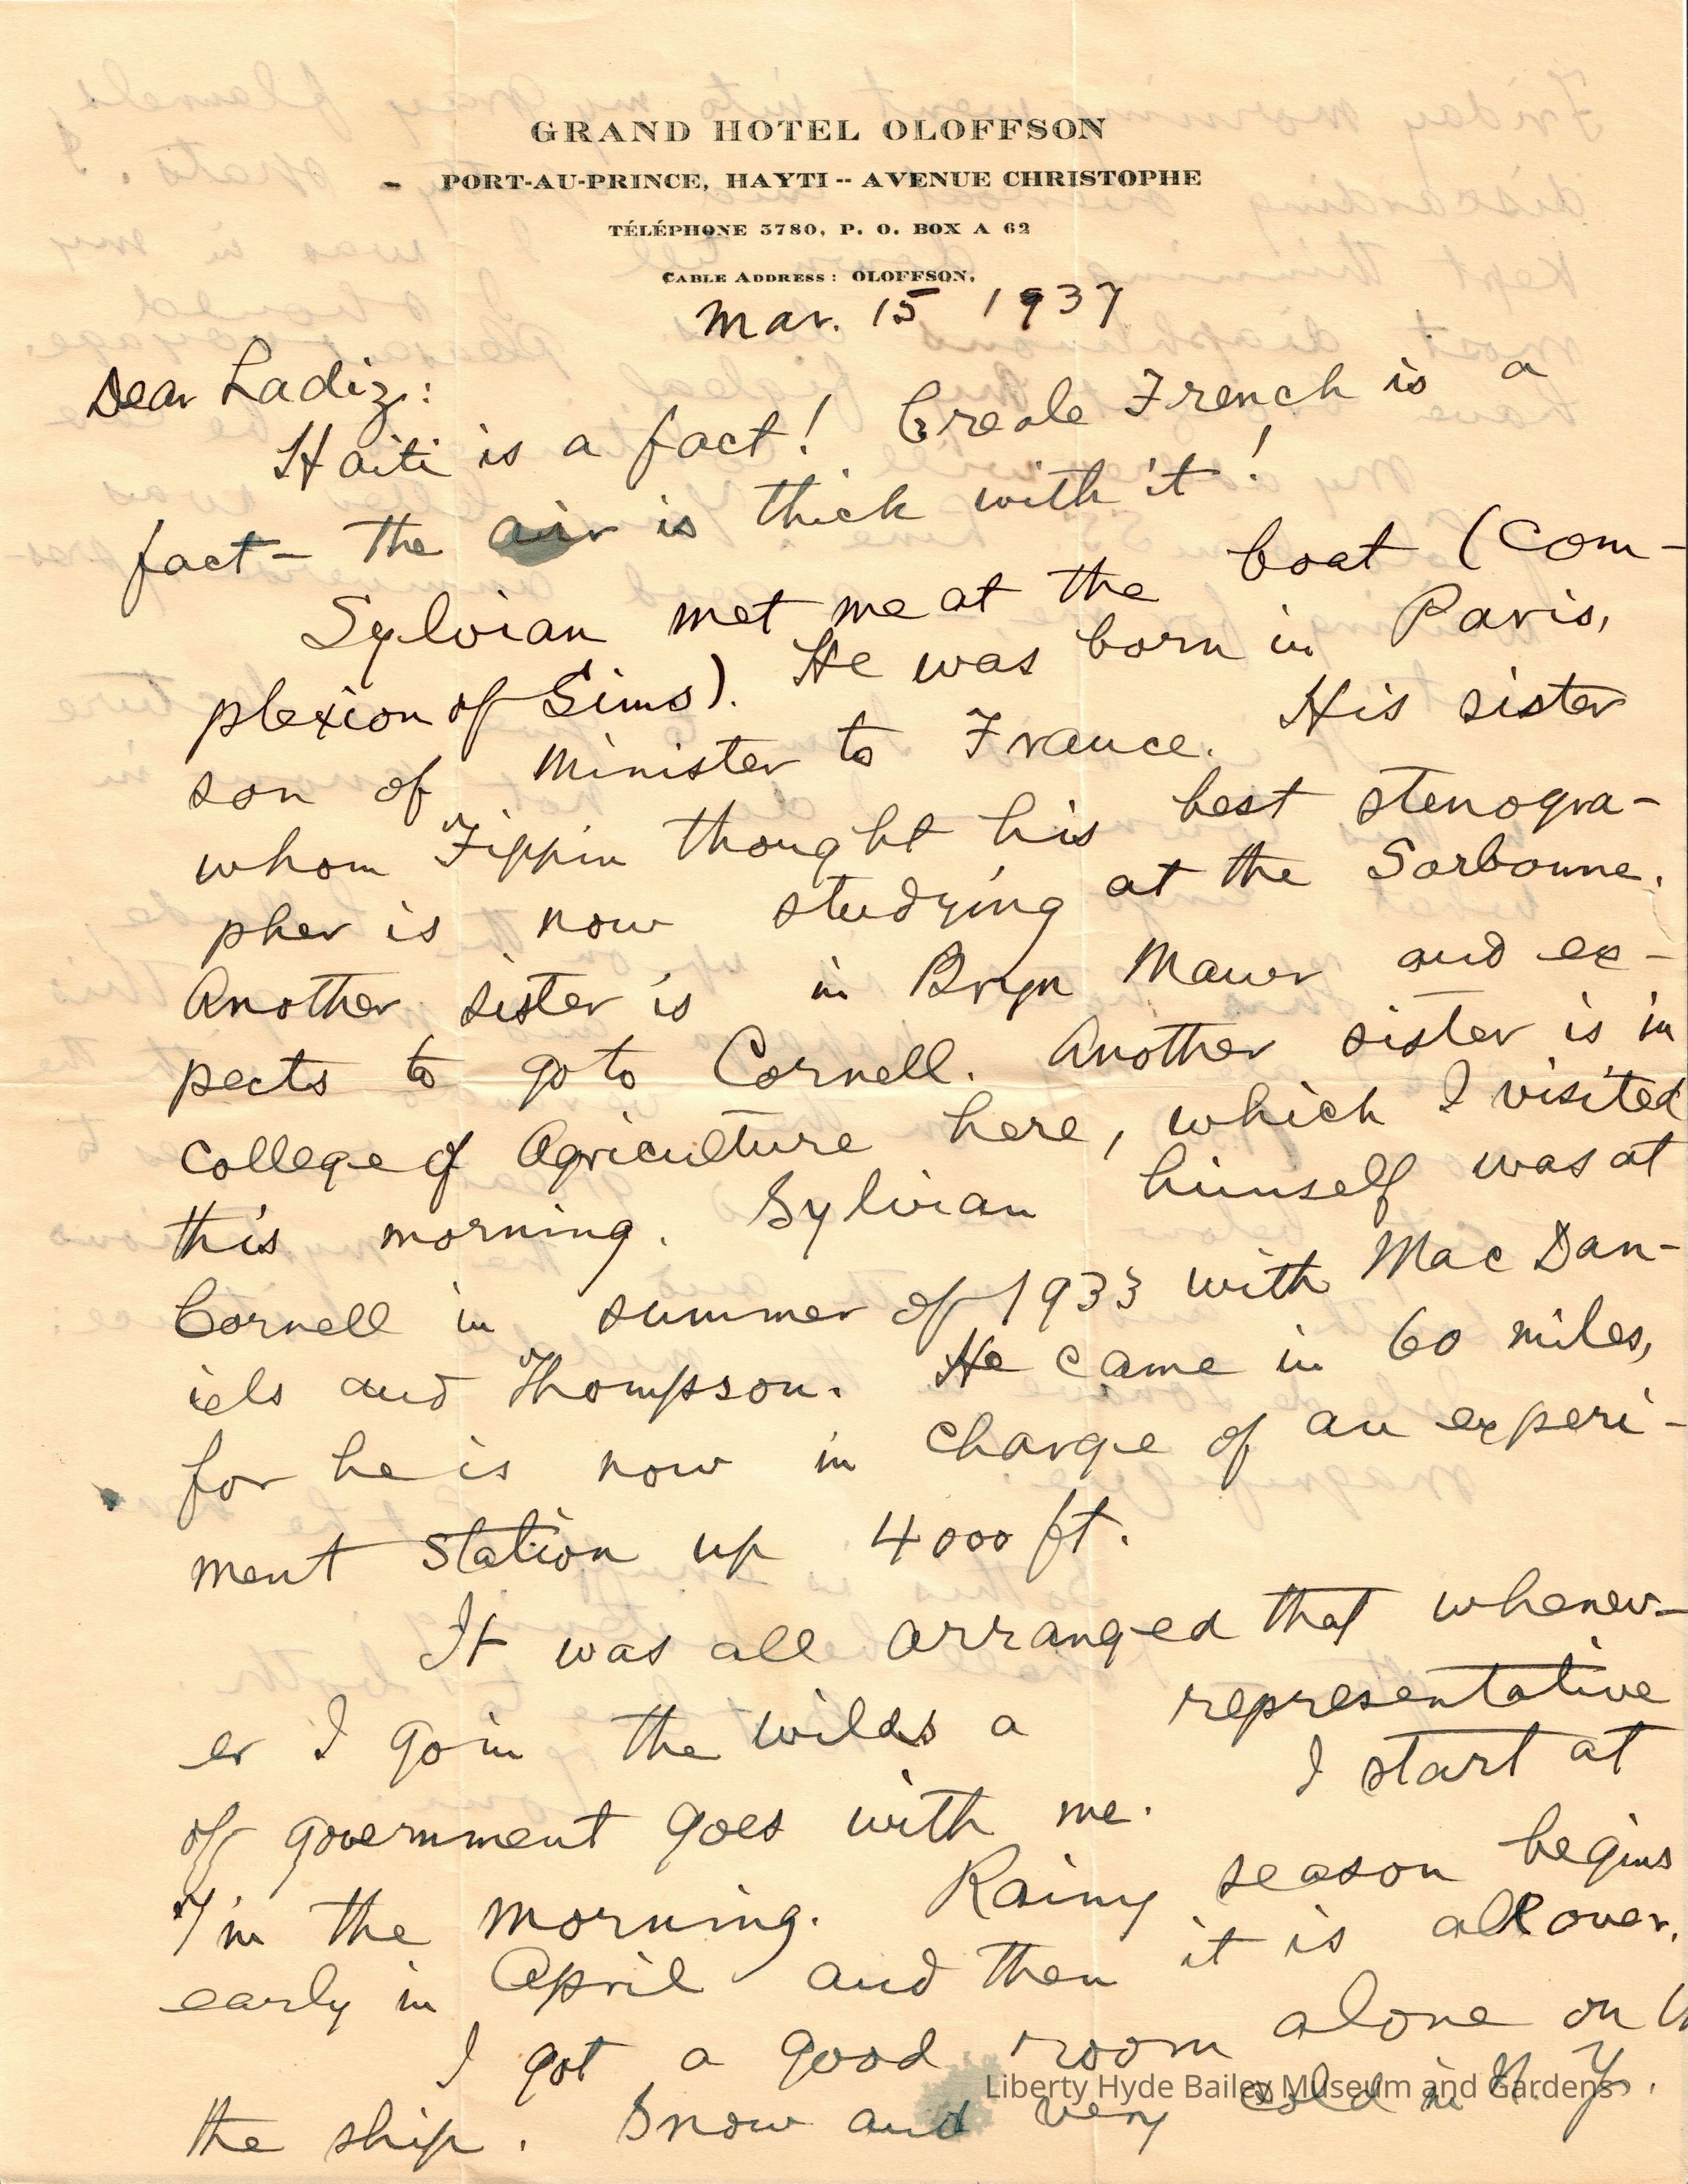 GRAND HOTEL OLOFFSON
PORT-AU-PRINCE, HAYTI -- AVENUE CHRISTOPHE
TÉLÉPHONE 3780, P. O. BOX A 62
CABLE ADDRESS: OLOFFSON,
Mar. 15 1937
Dear Ladiz:
Haiti is a fact! Creole French is a
fact - the air is thick with it!
Sylvian met me at the boat (Com-
plexion of Sims). He was born in Paris,
son of Minister to France. His sister
whom Fippin thought his best stenogra-
pher is now studying at the Sorbonne.
Another sister is in Bryn Mawr and ex-
pects to go to Cornell. Another sister is in
College of Agriculture here, which I visited
this morning. Sylvian himself was at
Cornell in summer of 1933 with MacDan-
iels and Thompson. He came in 60 miles,
for he is now in charge of an experi-
ment station up 4000 ft.
It was all arranged that whenev-
er I go in the wilds a representative
of government goes with me. I start at
7 in the morning. Rainy season begins
early in April and then it is all over.
I got a good room alone on
the ship. Snow and very cold in N.Y.
Liberty Hyde Bailey Museum and Gardens